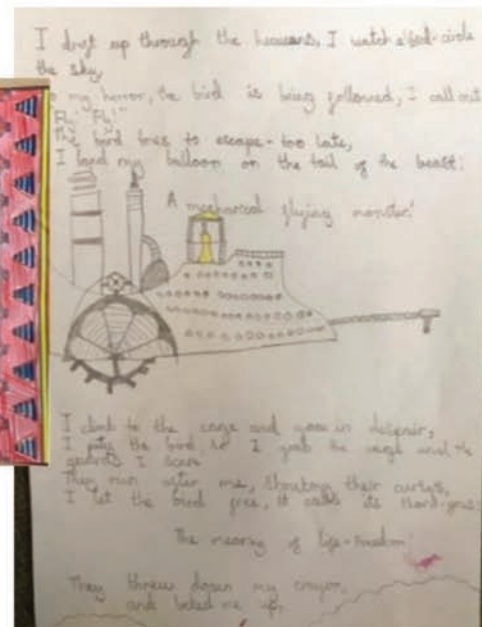 I drift up through the heavens, I watch a bird circle
the sky,
To my horror, the bird is being followed, I call out
"Fly! Fly!"
The bird tries to escape - too late,
I land my balloon on the tail of the beast!
A mechanical flying monster!
I climb to the cage and gaze in despair,
I pity the bird, so I grab the cage and the
guards I scare
They run after me, shouting their curses,
I let the bird free, it calls its thank-yous:
The meaning of life - Freedom!
They threw down my crayon,
and locked me up,